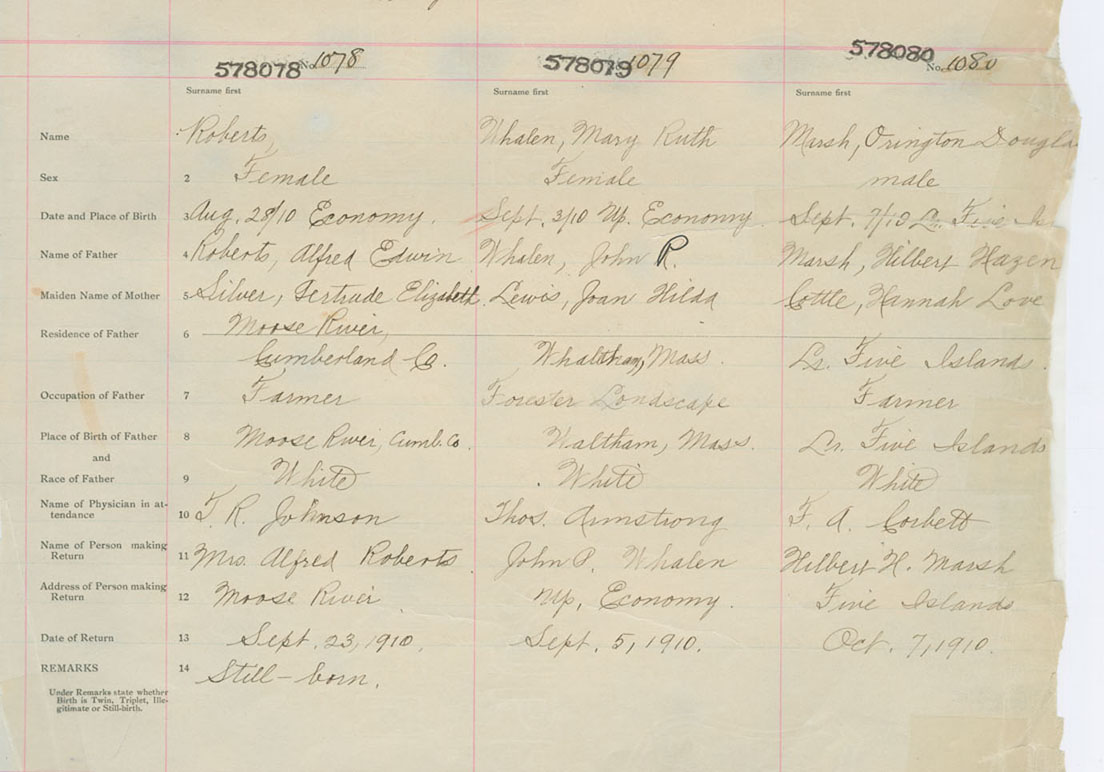 578078 No. 1078 578079 1079 578080 No. 1080
Surname first Surname first Surname first
Name Roberts, Whalen, Mary Ruth Marsh, Orington Dougla
Sex 2 Female Female male
Date and Place of Birth 3 Aug. 28/10 Economy. Sept. 3/10 Up. Economy Sept. 7/10 Lr. Five Is
Name of Father 4 Roberts, Alfred Edwin Whalen, John R. Marsh, Hilbert Hazen
Maiden Name of Mother 5 Silver, Gertrude Elizabeth. Lewis, Joan Hilda Cottle, Hannah Love
Residence of Father 6 Moose River,
Cumberland Co. Whaltham, Mass. Lr. Five Islands.
Occupation of Father 7 Farmer Forester Londscape Farmer
Place of Birth of Father 8 Moose River, Cumb. Co. Waltham, Mass. Lr. Five Islands
and
Race of Father 9 White White White
Name of Physician in at-
tendance 10 T. R. Johnson Thos. Armstrong F. A. Corbett
Name of Person making
Return 11 Mrs. Alfred Roberts. John P. Whalen Hilbert H. Marsh
Address of Person making
Return 12 Moose River. Up. Economy. Five Islands
Date of Return 13 Sept. 23, 1910. Sept. 5, 1910. Oct. 7, 1910.
REMARKS 14 Still-born.
Under Remarks state whether
Birth is Twin, Triplet, Ille-
gitimate or Still-birth.